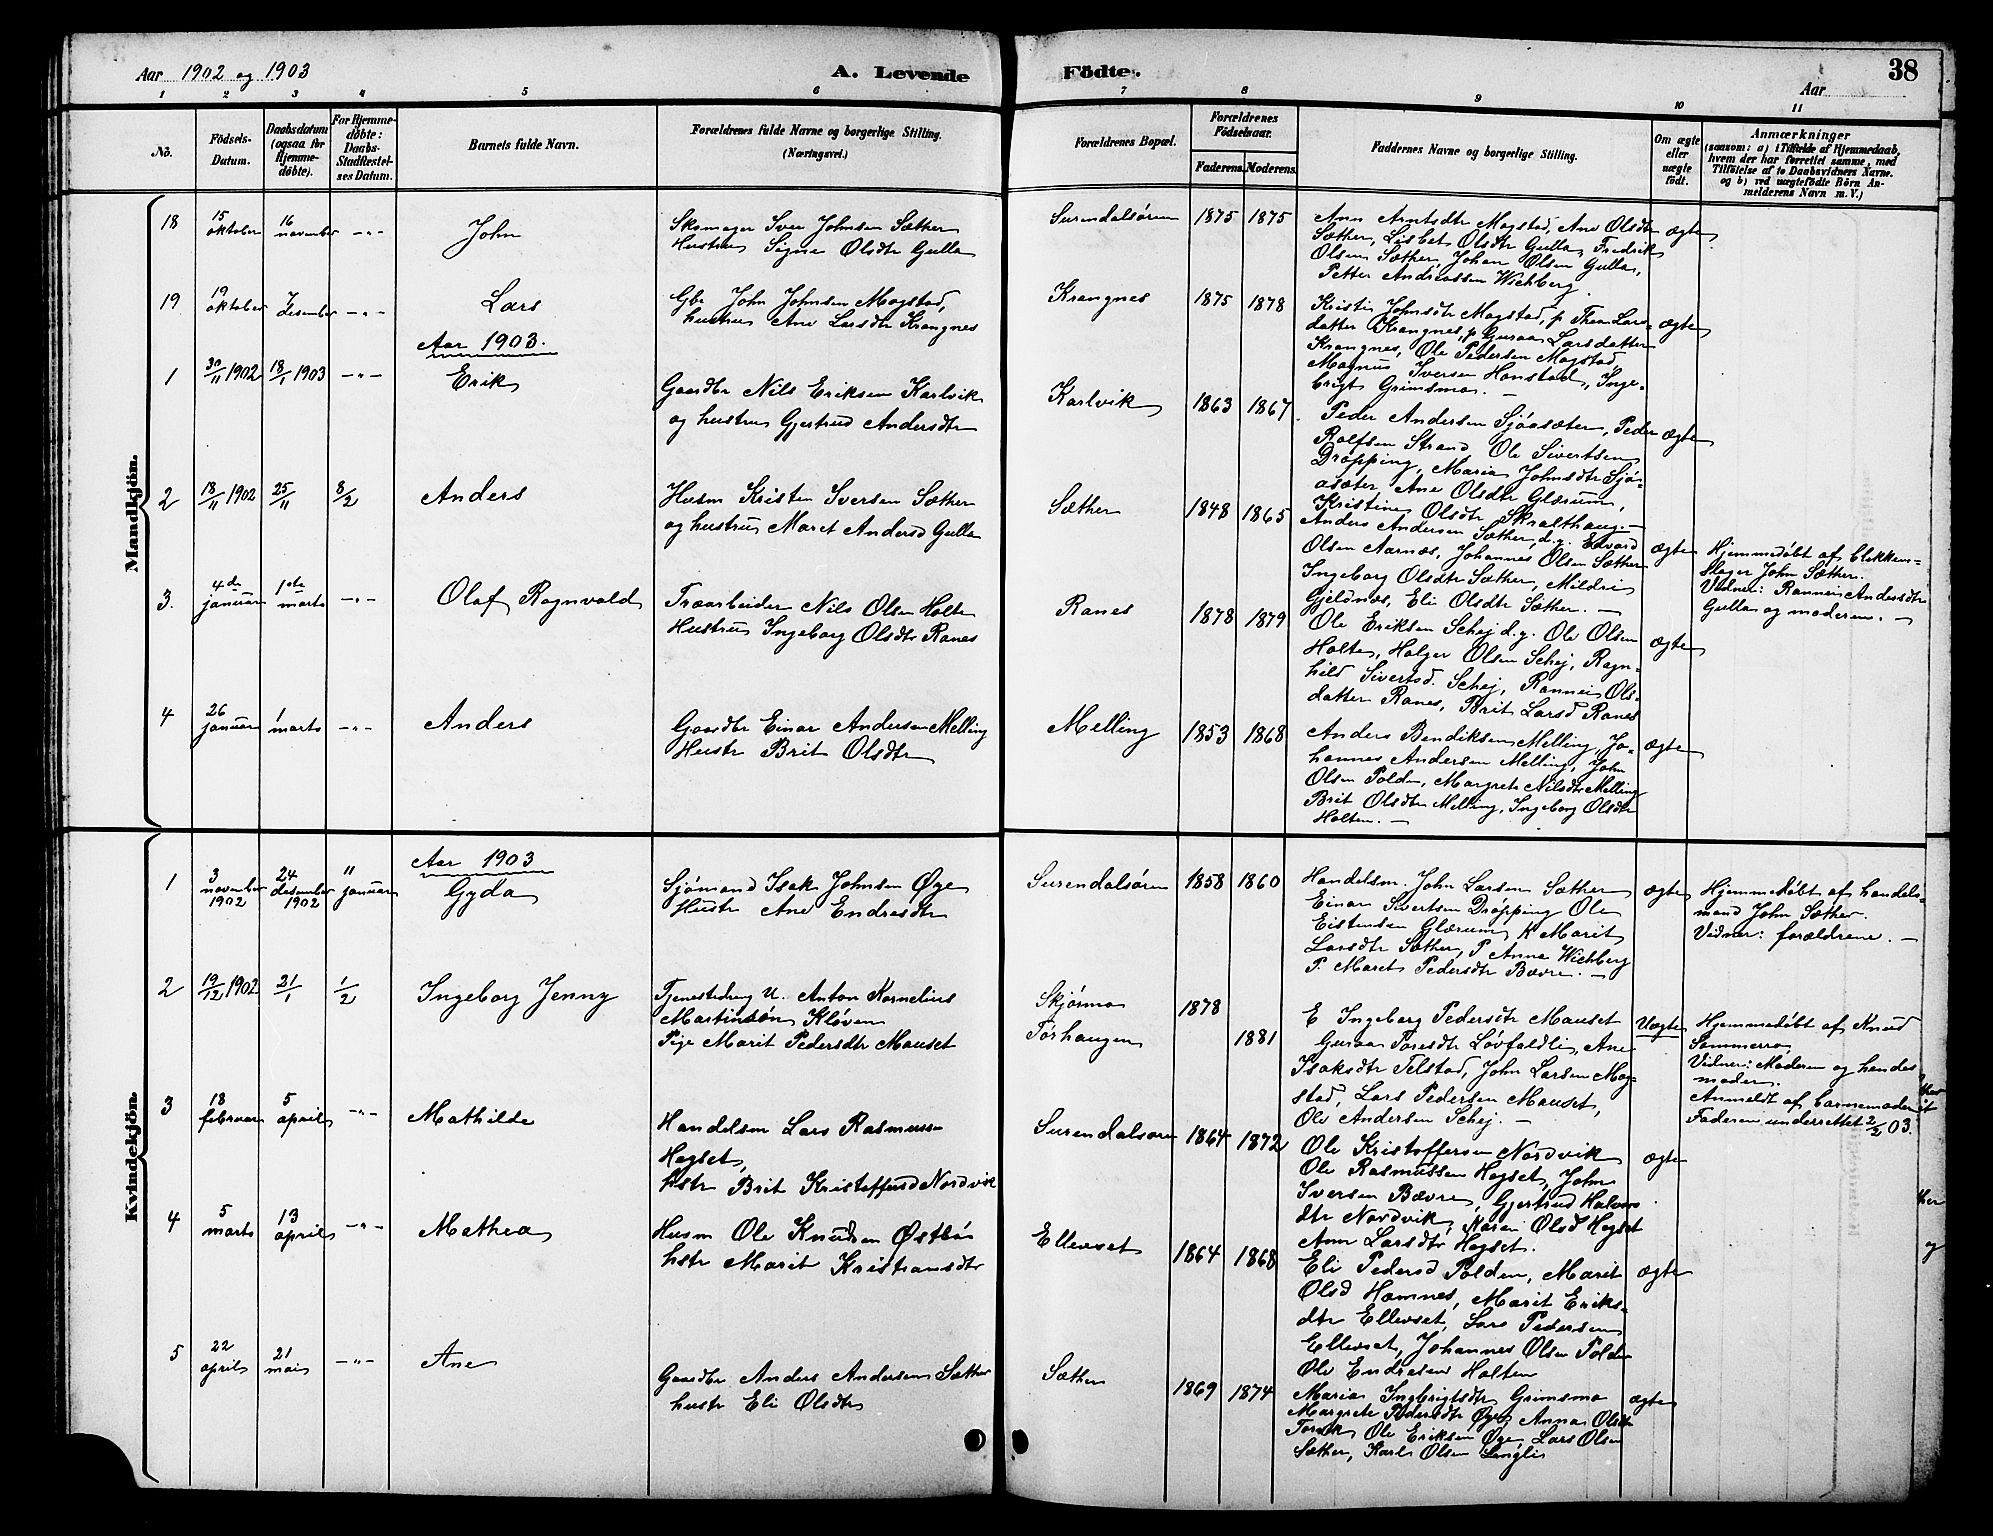 Aar 1902 og 1903
A. Levende Födte.
Aar
38
1 2 3 4 5 6 7 8 9 10 11
No.
Födsels-
Datum.
Daabsdatum
(ogsaa for
Hjemme-
døbte).
For Hjemme-
døbte:
Daabs-
Stadfestel-
ses Datum.
Barnets fulde Navn.
Forældrenes fulde Navne og borgerlige Stilling.
(Næringsvei.)
Forældrenes Bopæl.
Forældrenes
Födselsaar.
Faderens. Moderens.
Faddernes Navne og borgerlige Stilling.
Om ægte
eller
uægte
født.
Anmærkninger
(saasom: a) i Tilfælde af Hjemmedaab,
hvem der har forrettet samme, med
Tilføielse af to Daabsvidners Navne,
og b) ved uægtefödte Börn An-
melderens Navn m. V.)
Mandkjön.
18
15
oktober
16
november
-"-
John
Skomager Iver Johnsen Sæther
Hustru Signe Olsdtr Gulla
Surendalsøren
1875 1875
Ann Arntsdtr Mogstad, Ane Olsdtr
Sæther, Lisbet Olsdtr Gulla, Fredrik
Olsen Sæther, Johan Olsen Gulla,
Petter Andreassen Wichberg
ægte
19
19
oktober
7
desember
-"-
Lars
Gbr John Johnsen Mogstad,
hustru Ane Larsdtr Krangnes
Krangnes
1875 1878
Kristin Johnsdtr Mogstad, p Thea Lars-
datter Krangnes, p Guraa Larsdatter
Krangnes, Ole Pedersen Mogstad,
Magnus Iversen Honstad, Inge-
brigt Grimsmo. -
ægte
Aar 1903.
1
30/11 1902
18/1 1903
-"-
Erik
Gaardbr Nils Eriksen Karlvik
og hustru Gjertrud Andersdtr
Karlvik
1863 1867
Peder Andersen Sjöasæter, Peder
Rolfsen Strand, Ole Sivertsen
Dröpping, Maria Johnsdtr Sjö-
asæter, Ane Olsdtr Glærum,
Kristine Olsdtr Skralthaug. -
ægte
2
18/11 1902
25/11
8/2
Anders
Husm Kristen Iversen Sæther
og hustru Maret Andersd Gulla
Sæther
1848 1865
Anders Andersen Sæther, d.y. Edvard
Olsen Aarnes, Johannes Olsen Sæther
Ingeborg Olsdtr Sæther, Mildri
Gjeldnes, Eli Olsdtr Sæther. -
ægte
Hjemmedöbt af blikken-
slager John Sæther.
Vidner: Rannei Andersdtr
Gulla og moderen. -
3.
4de
januar
1ste
marts
-"-
Olaf Ragnvald
Træarbeider Nils Olsen Holte
Hustru Ingeborg Olsdtr Ranes
Ranes
1878 1879
Ole Eriksen Schej d.y. Ole Olsen
Holte, Holger Olsen Schej, Ragn-
hild Sivertsd. Schej, Rannei Ols-
datter Ranes, Brit Larsd Ranes
ægte
4
26
januar
1
marts
-"-
Anders
Gaardbr Einar Andersen Melling
Hustr Brit Olsdtr
Melling
1853 1868
Anders Bendiksen Melling, Jo-
hannes Andersen Melling, John
Olsen Polden, Margrete Nilsdtr Melling
Brit Olsdtr Melling, Ingeborg Olsdtr
Holten. -
ægte
Kvindekjön.
Aar 1903
1
3
november
1902
24
desember
1902
11
januar
Gyda
Sjömand Isak Johnsen Øye
Hustr Ane Endresdtr
Surendalsören
1858 1860
Handelsm. John Larsen Sæther
Einar Sivertsen Dröpping Ole
Eistensen Glærum, K Marit
Larsdtr Sæther, P Anna Wichberg
P. Maret Pedersdtr Bævre. -
ægte
Hjemmedöbt af handels-
mand John Sæther.
Vidner: forældrene. -
2
19/12 1902
21/1
1/2
Ingeborg Jenny
Tjenestedreng U. Anton Kornelius
Martinsön Klöven
Pige Marit Pedersdtr Mauset
Skjörmo
Torhaugen
1878
1881
E Ingeborg Pedersdtr Mauset
Guraa Toresdtr Lövfaldli, Ane
Isaksdtr Telstad, John Larsen Mog-
stad, Lars Pedersen Mauset,
Ole Andersen Schej. -
Uægte
Hjemmedöbt af Knud
Sommerro,
Vidner: Moderen og hendes
moder.
Anmeldt af barnemoder
Faderen underrettet 2/2 03.
3
18
februar
5
april
-"-
Mathilde
Handelsm Lars Rasmus-
Hegset,
hstr Brit Kristoffersd Nordvik
Surendalsören
1864 1872
Ole Kristoffersen Nordvik
Ole Rasmussen Hegset, John
Iversen Bævre, Gjertrud Halvors
dtr Nordvik, Karen Olsd Hegset
Ane Larsdtr Hegset.
ægte
4
5
marts
13
april
-"-
Mathea
Husm Ole Knudsen Østbö
hstr Marit Kristiansdtr
Ellevset
1864 1868
Eli Pedersd Polden, Marit
Olsd Hamnes, Marit Eriks-
dtr Ellevset, Lars Pedersen
Ellevset, Johannes Olsen Polden
Ole Endresen Holten
ægte
5
22
april
21
mai
-"-
Ane
Gaardbr Anders Andersen Sæther
hustr Eli Olsdtr
Sæther
1869 1874
Maria Ingbrigtsdtr Grimsmo
Margrete Pedersdtr Øye, Anna Olsdtr
Torvik, Ole Eriksen Øye, Lars Olsen
Sæther, Karl Olsen Langli
ægte